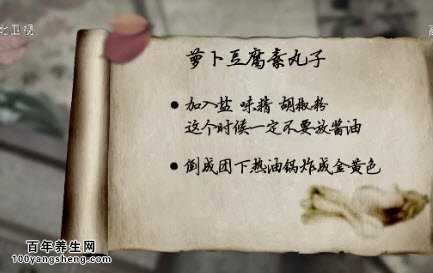 卫视
萝卜豆腐素丸子
● 加入盐 味精 胡椒粉
这个时候一定不要放酱油
● 倒成团下热油锅炸成金黄色
百年养生网
100yangsheng.com